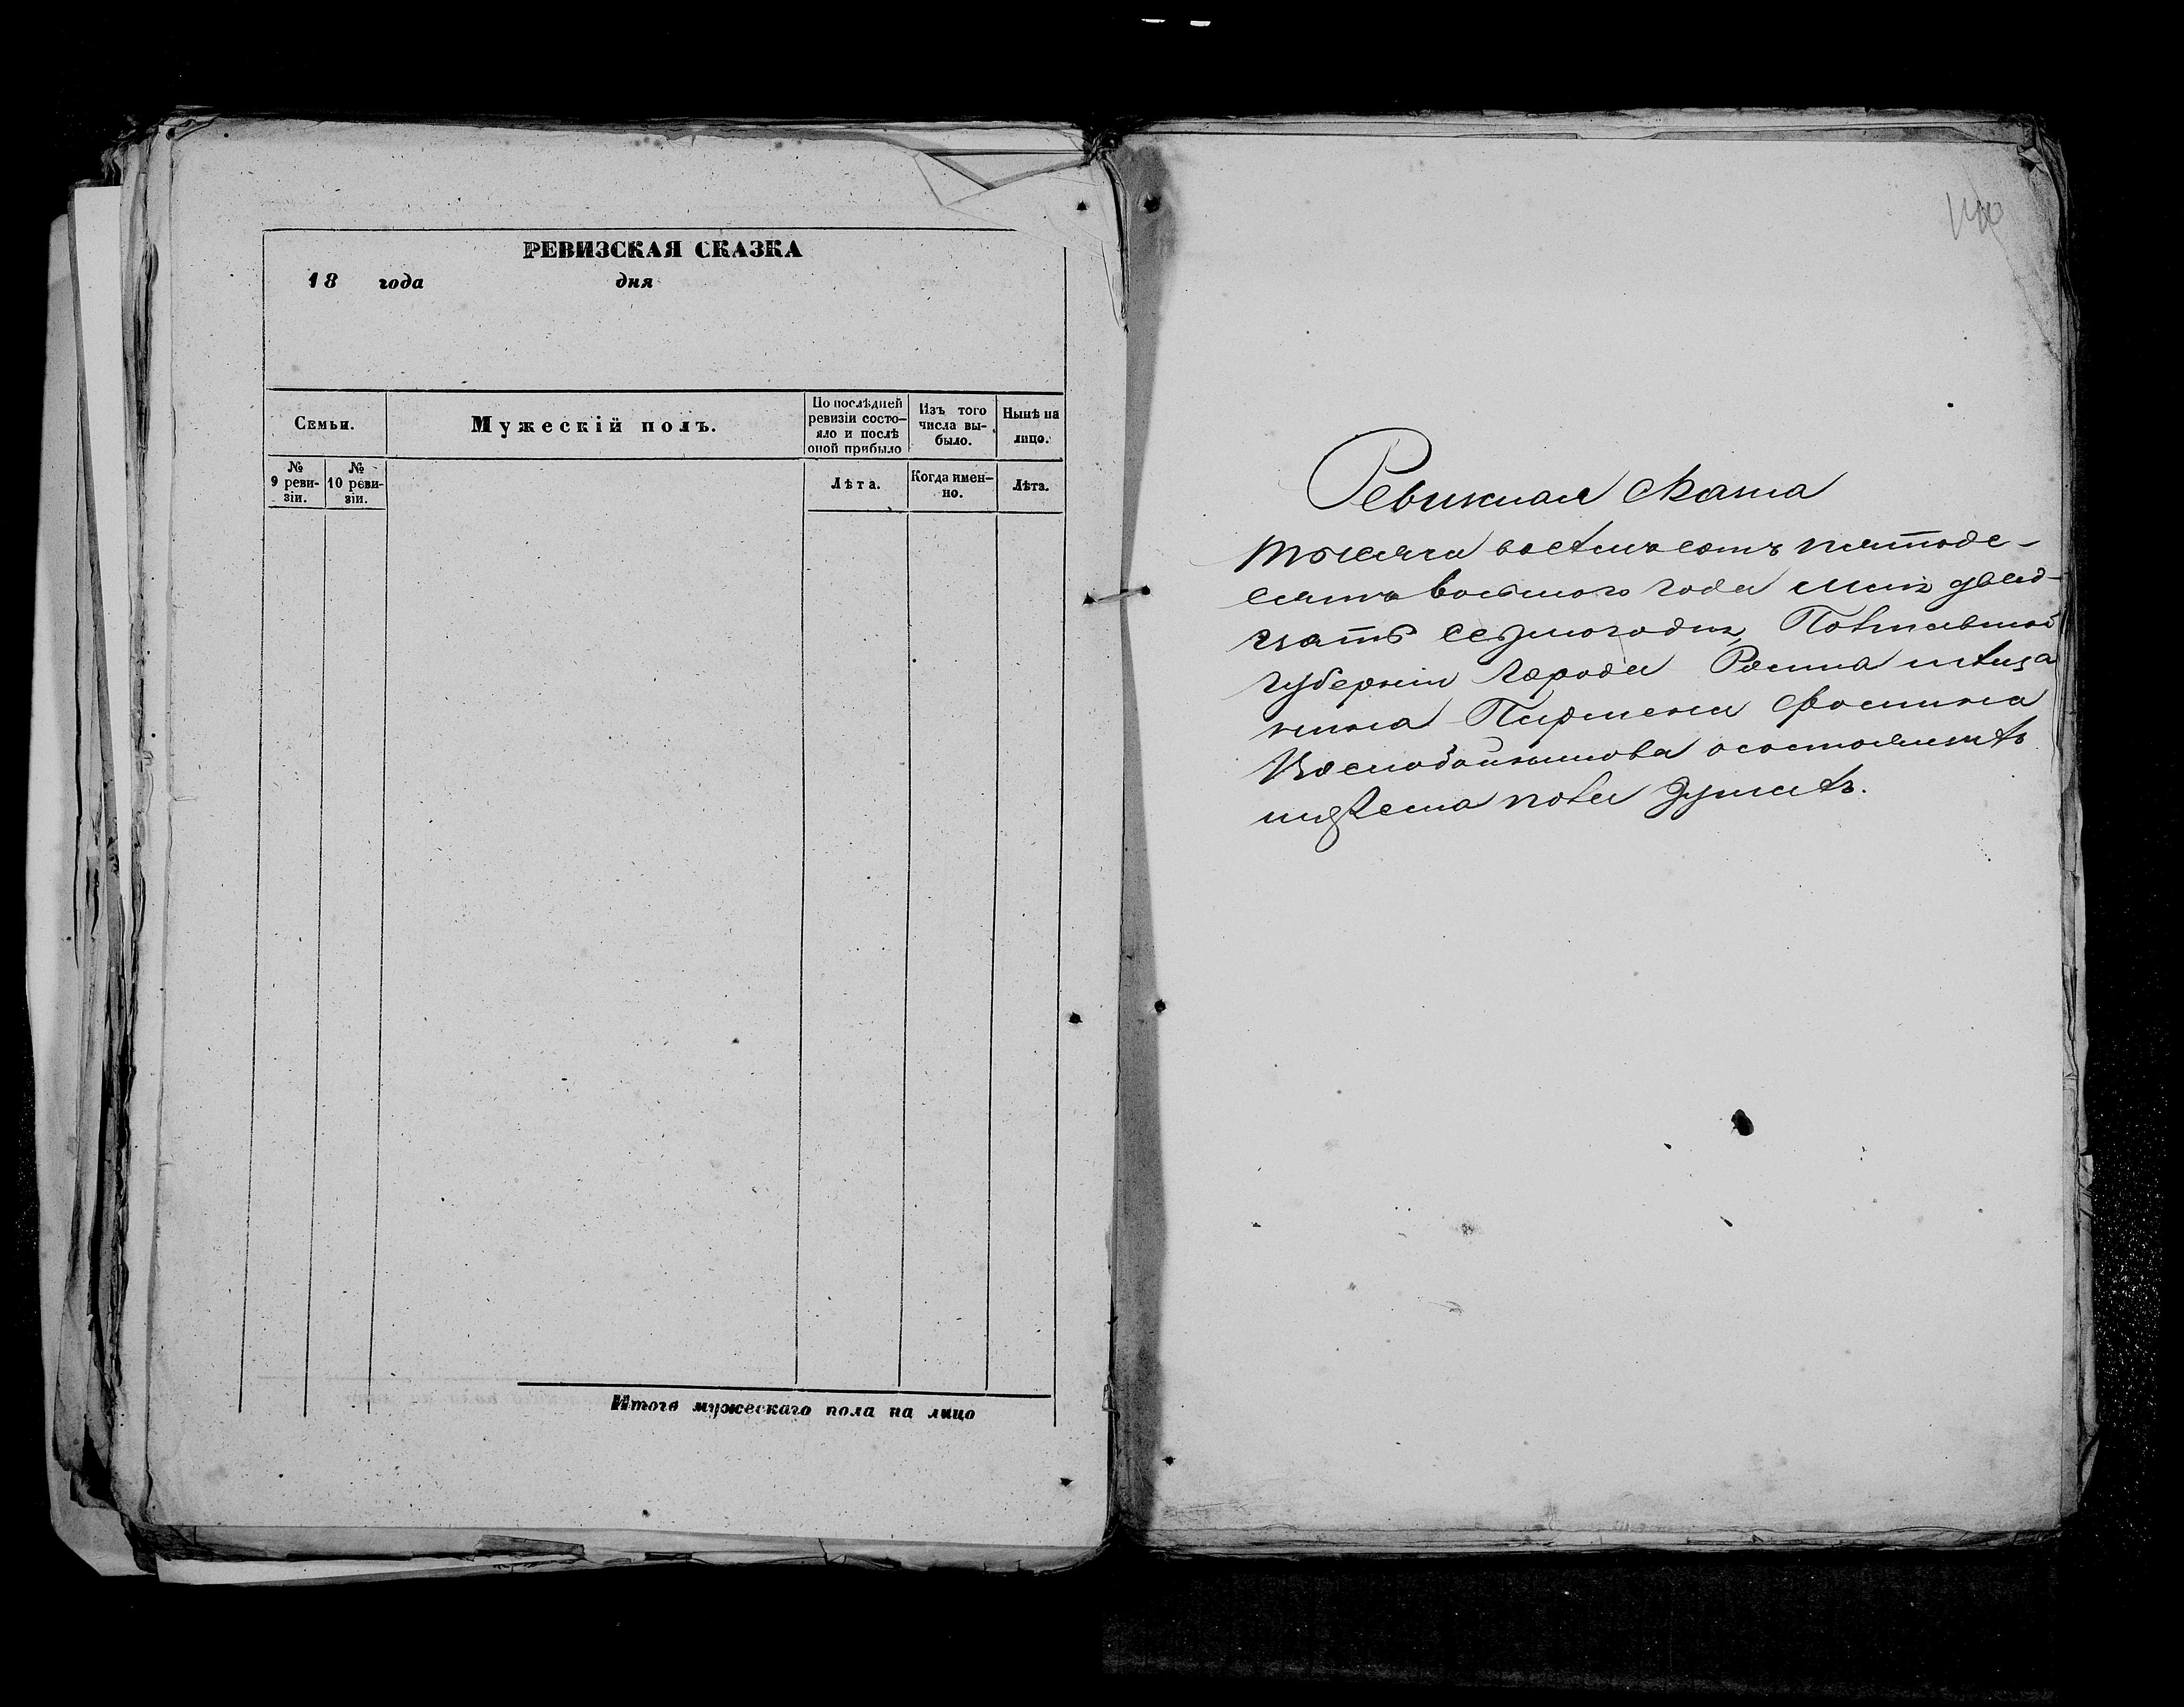 РЕВИЗСКАЯ СКАЗКА
18 года дня
Семьи.
Мужескій полъ.
По послѣдней ревизіи состо-
яло и послѣ оной прибыло
Изъ того числа вы-
было.
Нынѣ на лицо.
№ 9 реви-
зіи.
№ 10 реви-
зіи.
Лѣта.
Когда имен-
но.
Лѣта.
Итого мужескаго пола на лицо
140
тысяча восемь сотъ пятьде-
сятъ восьмого года двад-
цать Полтавской
губерніи города Ромна мѣща
нина Фомина
о состоящихъ
пола душахъ.